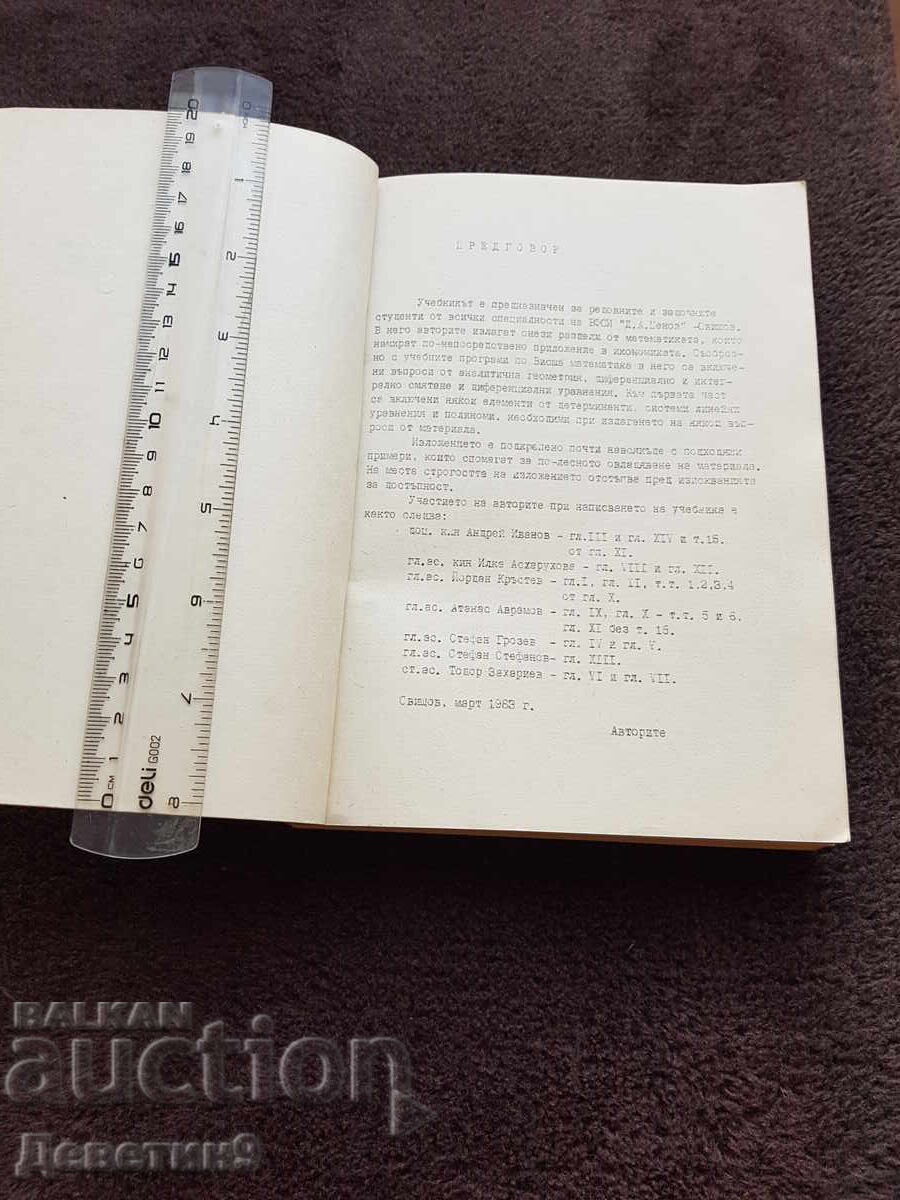 ПРЕДГОВОР
Учебникът е предназначен за редовните и задочните
студенти от всички специалности на ВФСИ "Д.А.Ценов" -Свищов.
В него авторите излагат онези раздели от математиката, които
намират по-непосредствено приложение в икономиката. Съобраз-
но с учебните програми по Висша математика в него са включе-
ни въпроси от аналитична геометрия, диференциално и интег-
рално смятане и диференциални уравнения. Към първата част
са включени някои елементи от детерминанти, системи линейни
уравнения и полиноми, необходими при излагането на някои въп-
роси от материала.
Изложението е подкрепено почти навсякъде с подходящи
примери, които спомагат за по-лесното овладяване на материала.
На места строгостта на изложението отстъпва пред изискванията
за достъпност.
Участието на авторите при написването на учебника е
както следва:
доц. кин Андрей Иванов - гл.III и гл. XIV и т.15.
от гл. XI.
гл.ас. кин Илка Асхарухова - гл. VIII и гл. XII.
гл.ас. Йордан Кръстев - гл.I, гл. II, т.т. 1,2,3,4
от гл. X.
гл.ас. Атанас Аврамов - гл. IX, гл. X - т.т. 5 и 6.
гл. XI без т. 15.
гл.ас. Стефан Грозев - гл. IV и гл. V.
гл.ас. Стефан Стефанов- гл. XIII.
ст.ас. Тодор Захариев - гл. VI и гл. VII.
Свищов, март 1983 г.
Авторите
0 см 1 2 3 4 5 6 7 8 9 10 11 12 13 14 15 16 17 18 19 20
0 1 2 3 4 5 6 7 8
deli G002
BALKAN
auction
Деветин9